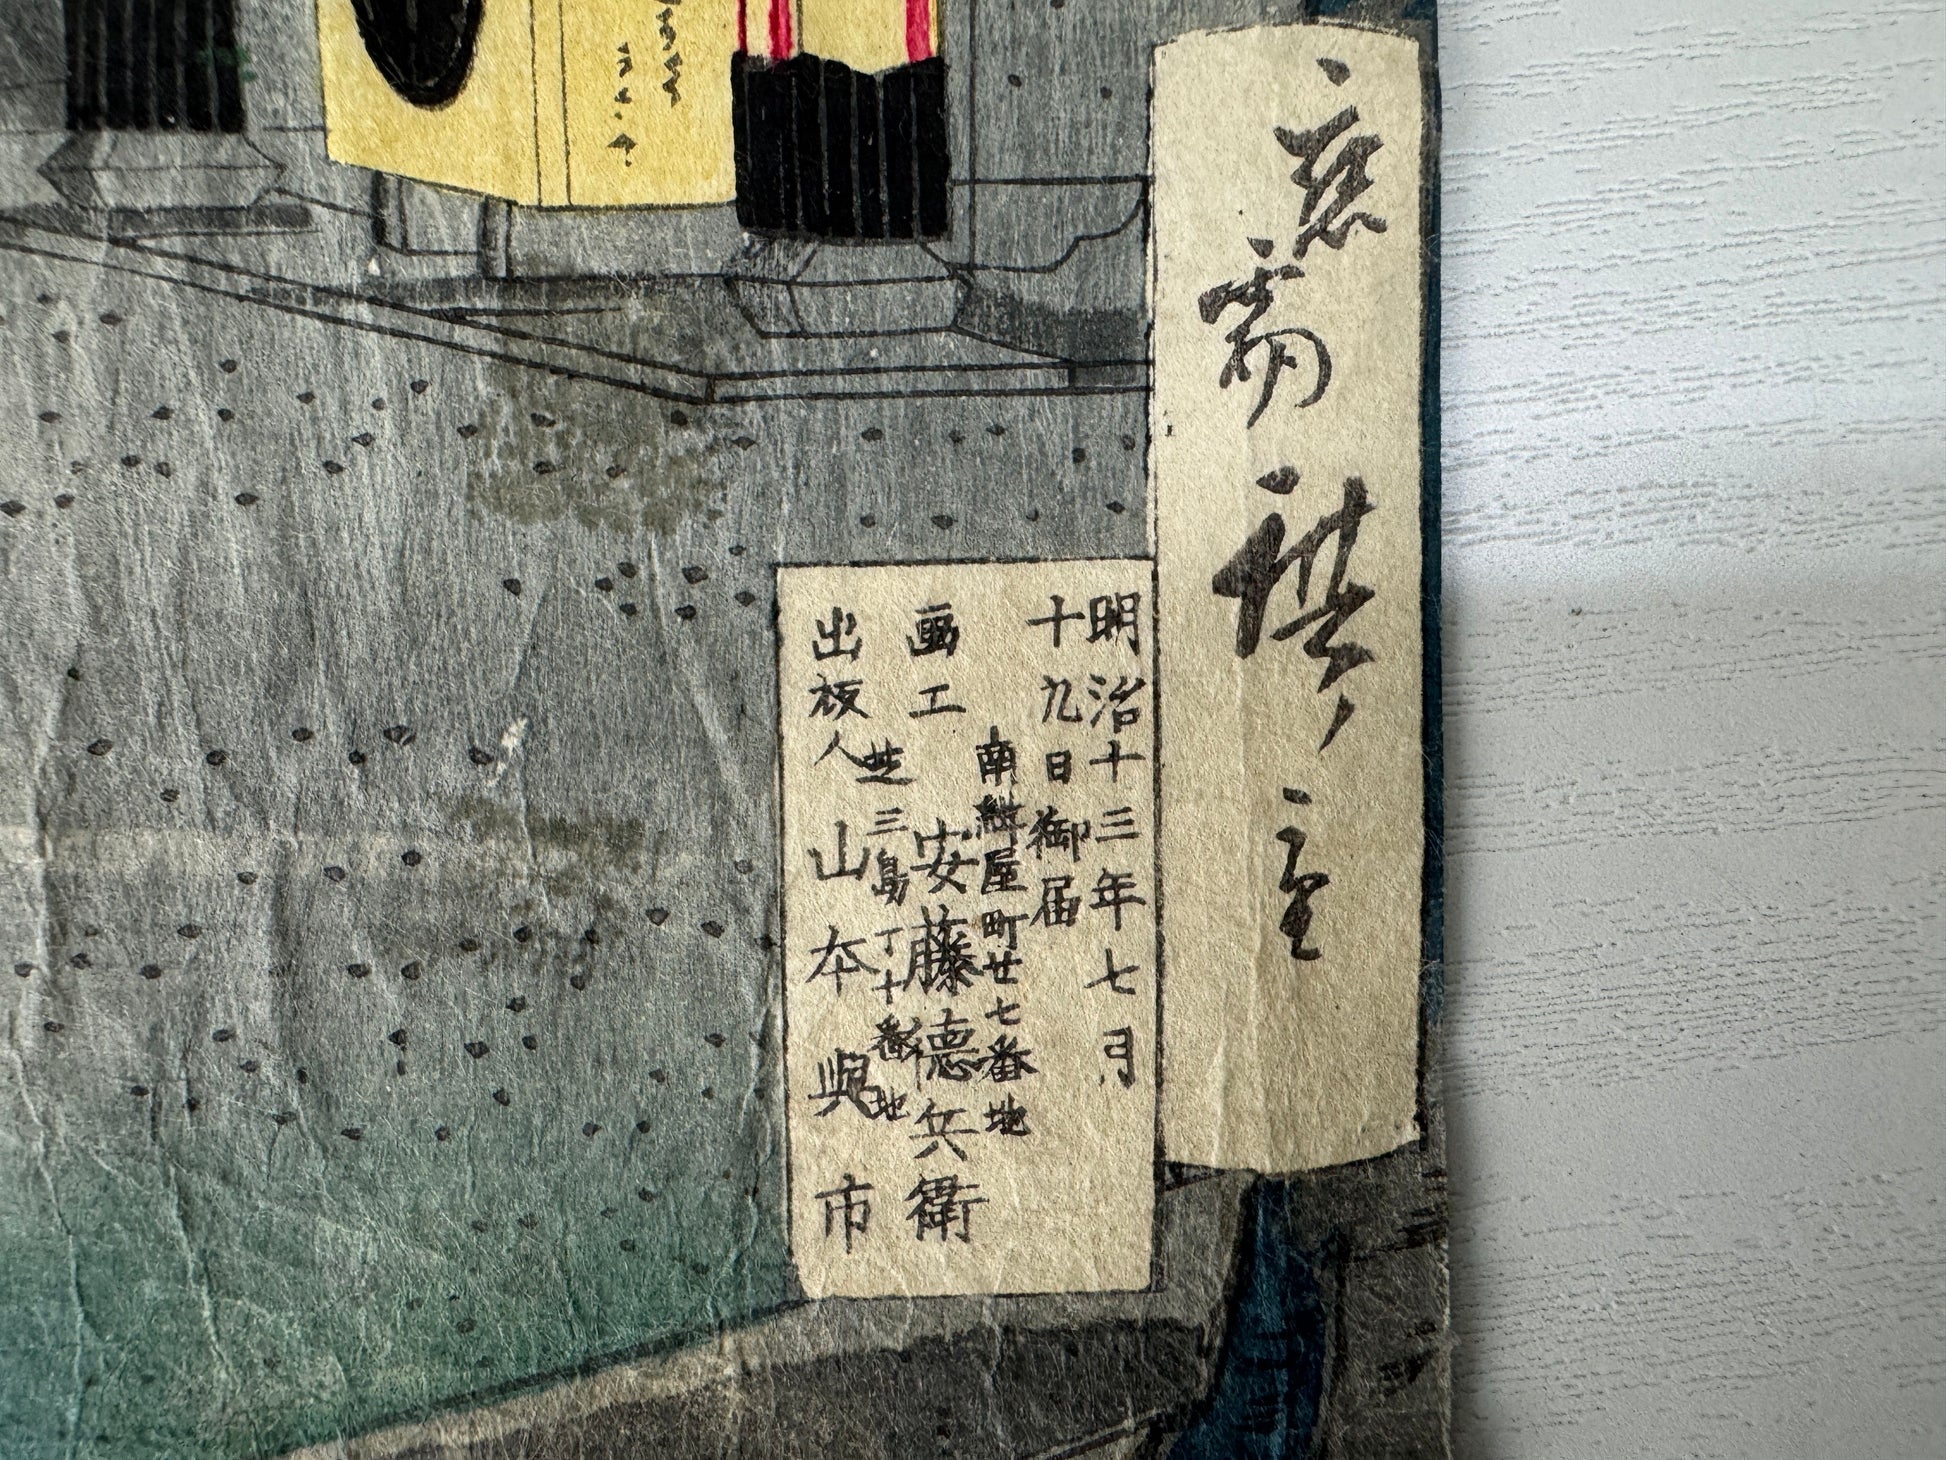 應需廣重
明治十三年七月
十九日御届
南紺屋町廿七番地
画工 安藤徳兵衛
芝三島丁十番地
出板人 山本與市